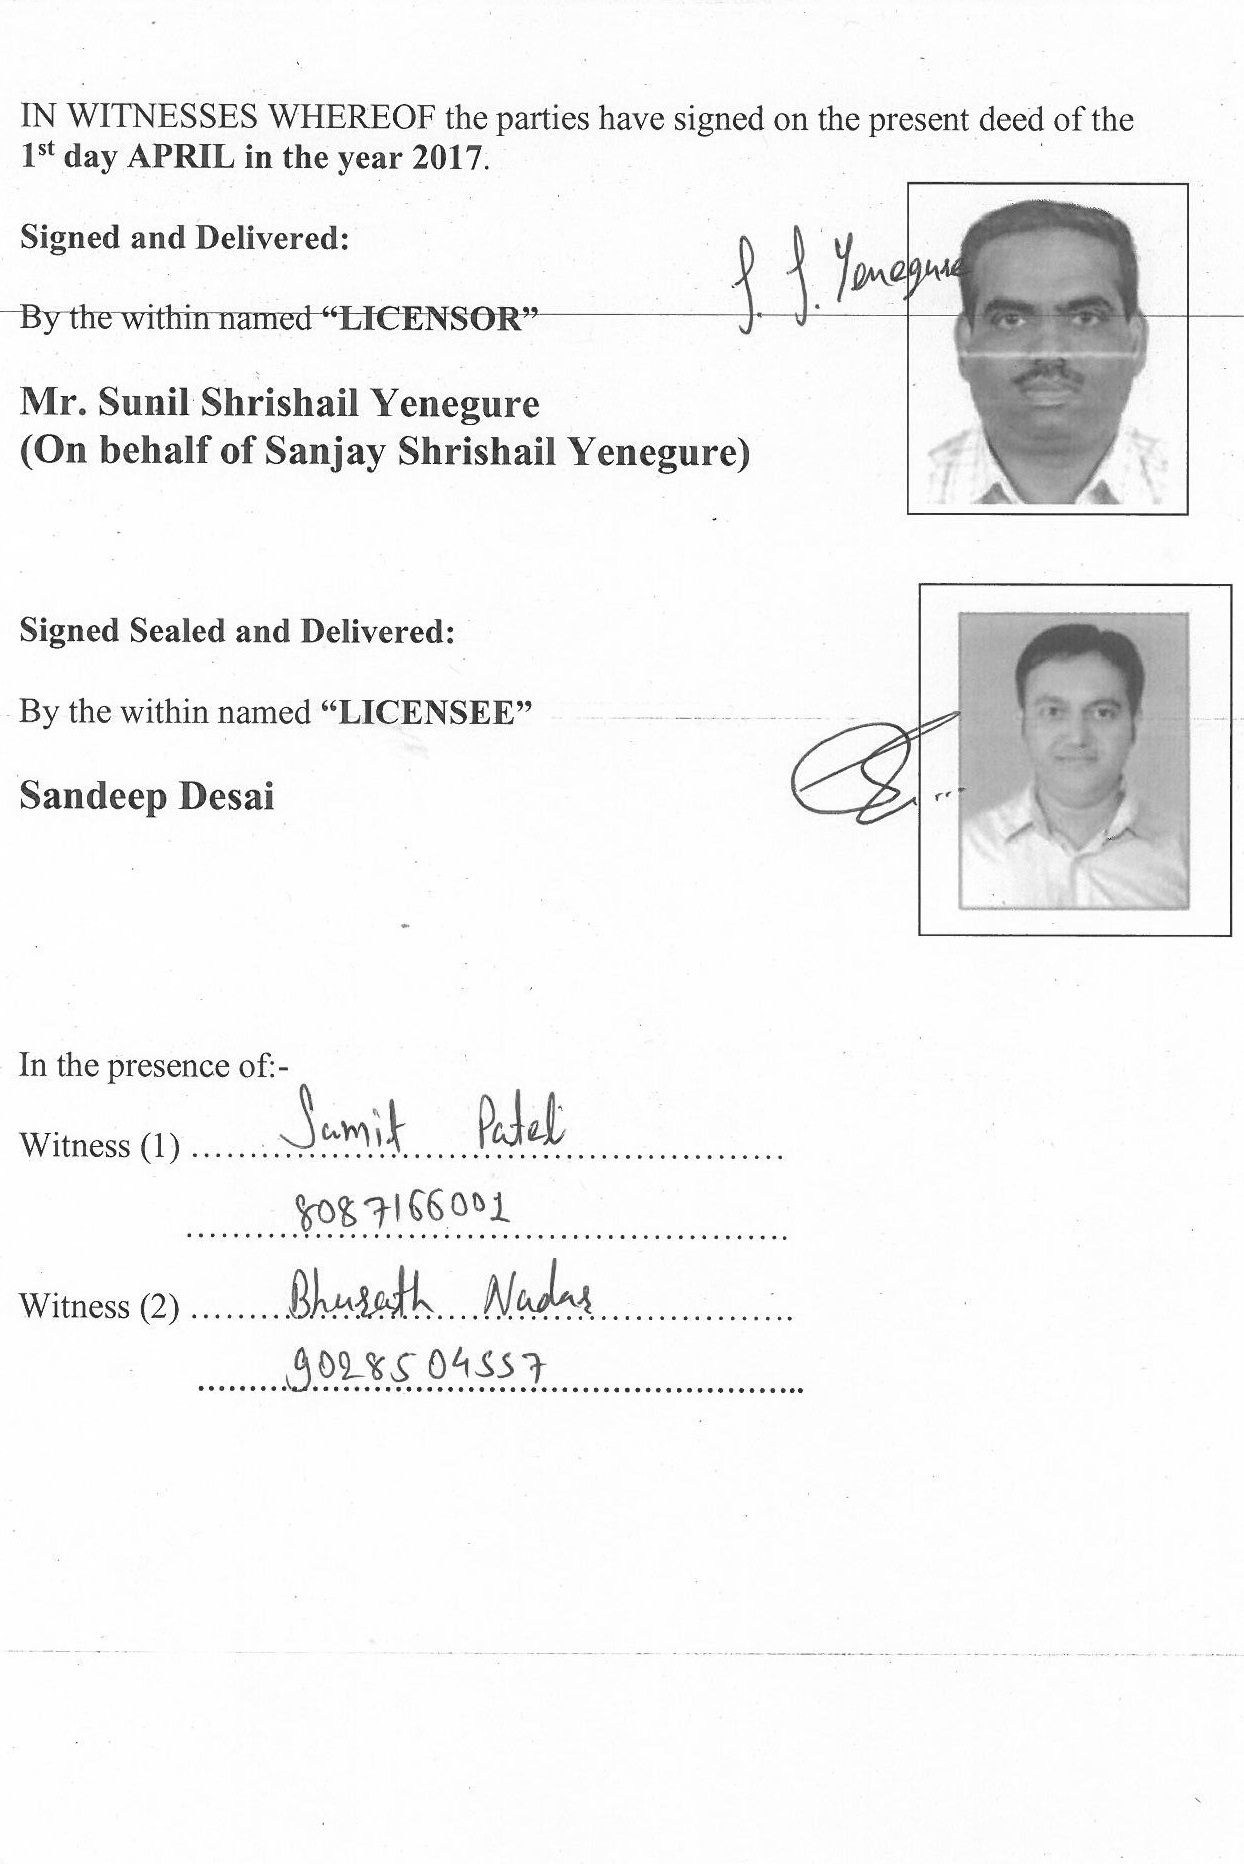 IN WITNESSES WHEREOF the parties have signed on the present deed of the
1st day APRIL in the year 2017.
Signed and Delivered:
S. S. Yenegure
By the within named “LICENSOR”
Mr. Sunil Shrishail Yenegure
(On behalf of Sanjay Shrishail Yenegure)
Signed Sealed and Delivered:
By the within named “LICENSEE”
Sandeep Desai
In the presence of:-
Witness (1) Samit Patel
8087166001
Witness (2) Bharath Nadar
9028504557